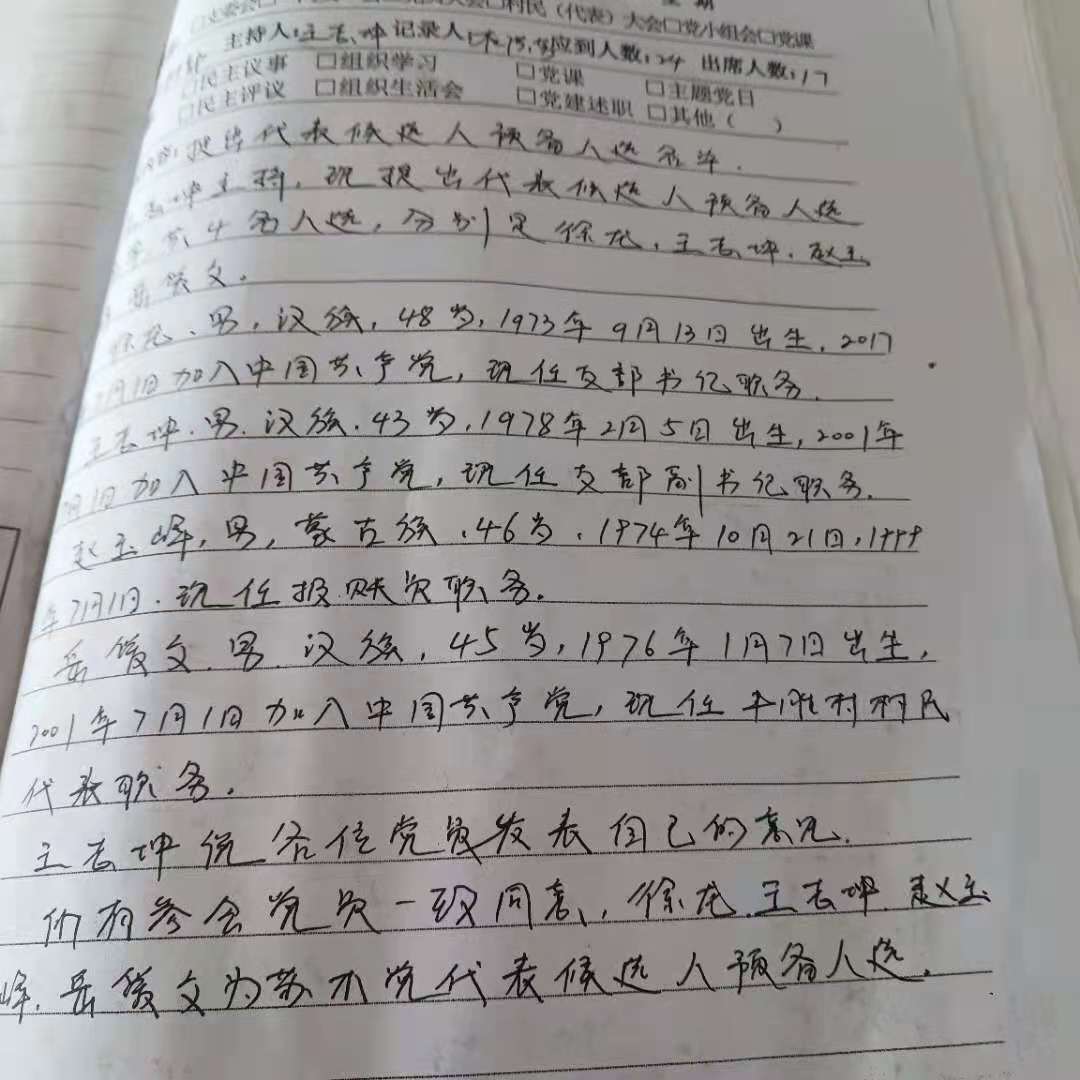 星 期
党员大会□村民（代表）大会□党小组会□党课
主持人：王志坤 记录人： 应到人数：24 出席人数：17
□民主议事 □组织学习 □党课 □主题党日
□民主评议 □组织生活会 □党建述职 □其他（ ）
代表候选人预备人选名单.
志坤主持，现提出代表候选人预备人选
4名人选，分别是徐龙、王志坤、赵玉
岳俊文。
徐龙、男，汉族，48岁，1973年9月13日出生，2017
月1日加入中国共产党，现任支部书记职务.
王志坤、男、汉族、43岁，1978年2月5日出生，2001年
月1日加入中国共产党，现任支部副书记职务.
赵玉峰，男，蒙古族、46岁、1974年10月21日，1999
年7月1日、现任报账员职务。
岳俊文、男、汉族，45岁，1976年1月7日出生，
2001年7月1日加入中国共产党，现任 村村民
代表职务。
王志坤说各位党员发表自己的意见.
所有参会党员一致同意，徐龙、王志坤、赵玉
峰、岳俊文为苏木党代表候选人预备人选.